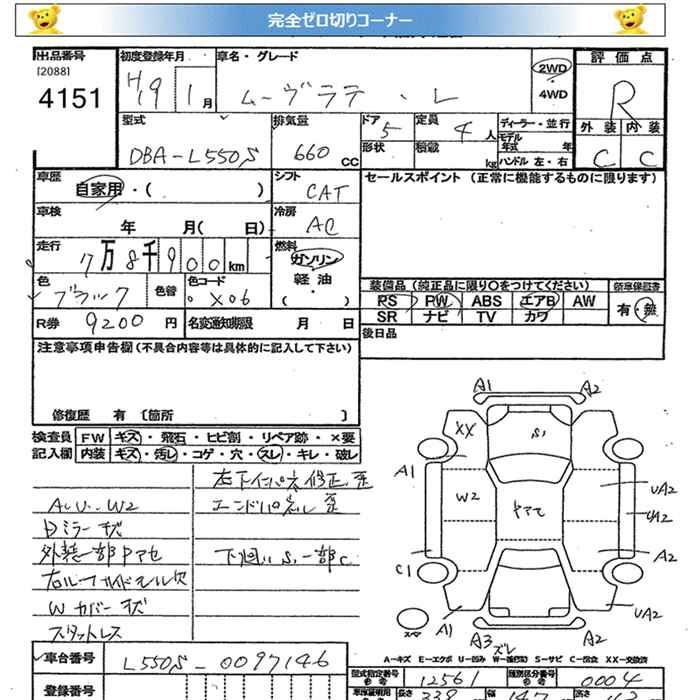 完全ゼロ切りコーナー
出品番号
[2088]
4151
初度登録年月
H19 1月
車名・グレード
ムーヴラテ・L
2WD
・
4WD
評価点
R
外装 内装
C C
型式
DBA-L550S
排気量
660 cc
ドア 5
形状
定員 4人
積載 kg
ディーラー・並行
モデル
年式 年
ハンドル 左・右
車歴
自家用・( )
シフト
CAT
セールスポイント (正常に機能するものに限ります)
車検
年 月( 日)
冷房
AC
走行
7万8千900km
燃料
ガソリン
軽油
・( )
色
ブラック
色替
色コード
X06
装備品 (純正品に限り○をつけてください)
PS PW ABS エアB AW
SR ナビ TV カワ
有・無
R券 9200円
名変通知期限 月 日
後日品
注意事項申告欄(不具合内容等は具体的に記入して下さい)
修復歴 有 〔箇所 〕
検査員
記入欄
FW キズ・飛石・ヒビ割・リペア跡・×要
内装 キズ・汚レ・コゲ・穴・スレ・キレ・破レ
W2
ミラーキズ
外装一部ヤアセ
Wカバーキズ
スタットレス
修正歪
エンドパネル歪
下廻りS、一部C
A1 A2
XX S1
A1 W2 ヤアセ UA2
UA2
C1 A2
UA2
スペア
A1 A3 ズレ A2
A-キズ E-エクボ U-凹み W-補修跡 S-サビ C-腐食 XX-交換済
車台番号 L550S-0097146
登録番号
型式指定番号 12561
類別区分番号 0004
長さ 339
幅 147
高さ